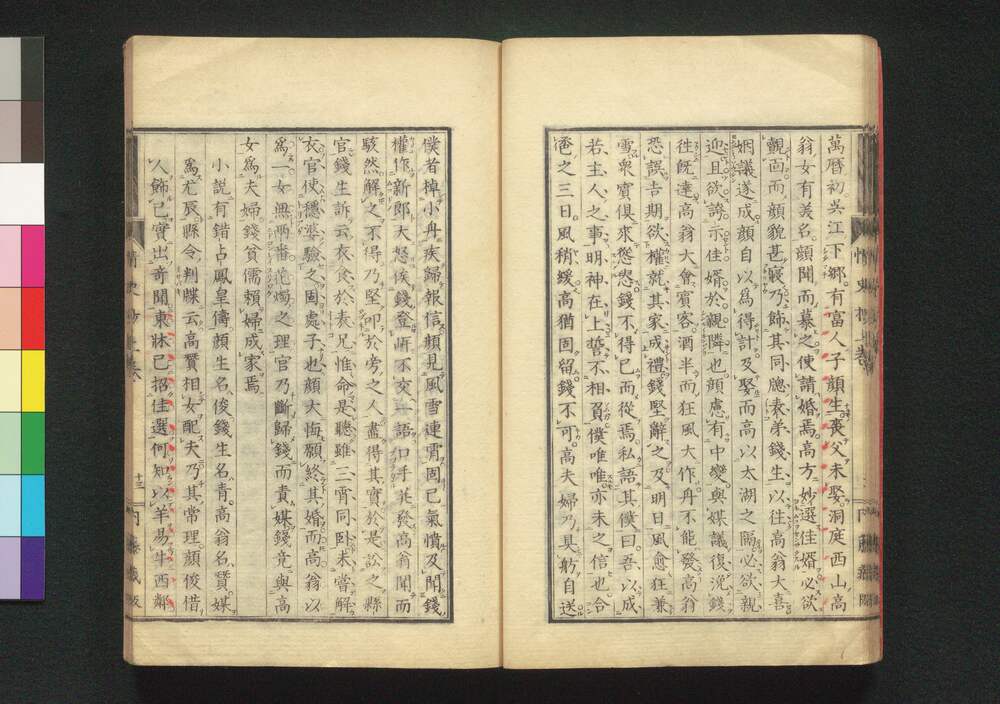 萬曆初吳江下鄉有富人子顏生喪父未娶洞庭西山高
翁女有美名顏聞而慕之使請婚焉高方妙選佳婿必欲
覿面而顏貌甚寢乃飾其同牕表弟錢生以往高翁大喜
姻議遂成顏自以爲得計及娶而高以太湖之隔必欲親
迎且欲誇示佳婿於親隣也顏慮有中變與媒議復浼錢
往既達高翁大會賓客酒半而狂風大作舟不能發高翁
恐誤吉期欲權就其家成禮錢堅辭之及明日風愈狂兼
雪衆賓俱來慫恿錢不得已而從焉私語其僕曰吾以成
若主人之事明神在上誓不相負僕唯唯亦未之信也合
巹之三日風稍緩高猶固留錢不可高夫婦乃具舫自送
僕者棹小舟疾歸報信顏見風雪連宵固已氣憤及聞錢
權作新郎大怒候錢登岍不交一語口手並發高翁聞而
駭然解之不得乃堅叩於旁之人盡得其實於是訟之縣
官錢生訴云衣食於表兄惟命是聽雖三宵同卧未嘗解
衣官使穩婆驗之固處子也顏大悔願終其婚而高翁以
爲一女無兩番花燭之理官乃斷歸錢而責媒錢竟與高
女爲夫婦錢貧儒賴婦成家焉
小說有錯占鳳皇儔顏生名俊錢生名青高翁名贊媒
爲尤辰縣令判牒云高贊相女配夫乃其常理顏俊借
人飾己實出奇聞東牀已招佳選何知以羊易牛西鄰
十三